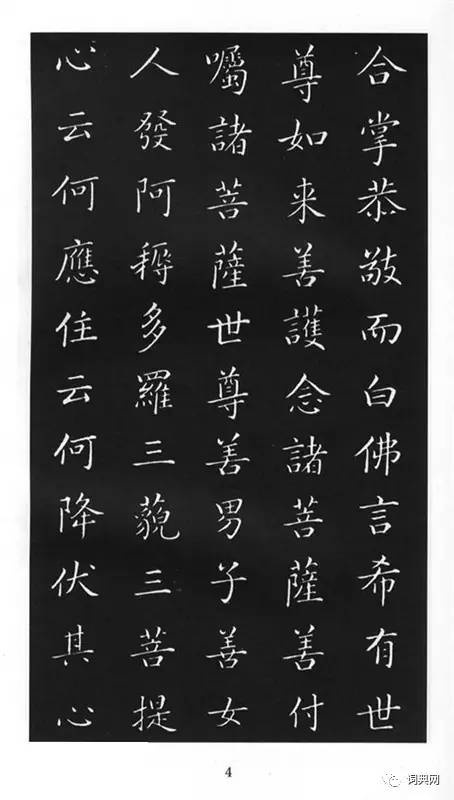 合掌恭敬而白佛言希有世
尊如来善護念諸菩薩善付
囑諸菩薩世尊善男子善女
人發阿耨多羅三藐三菩提
心云何應住云何降伏其心
4
词典网